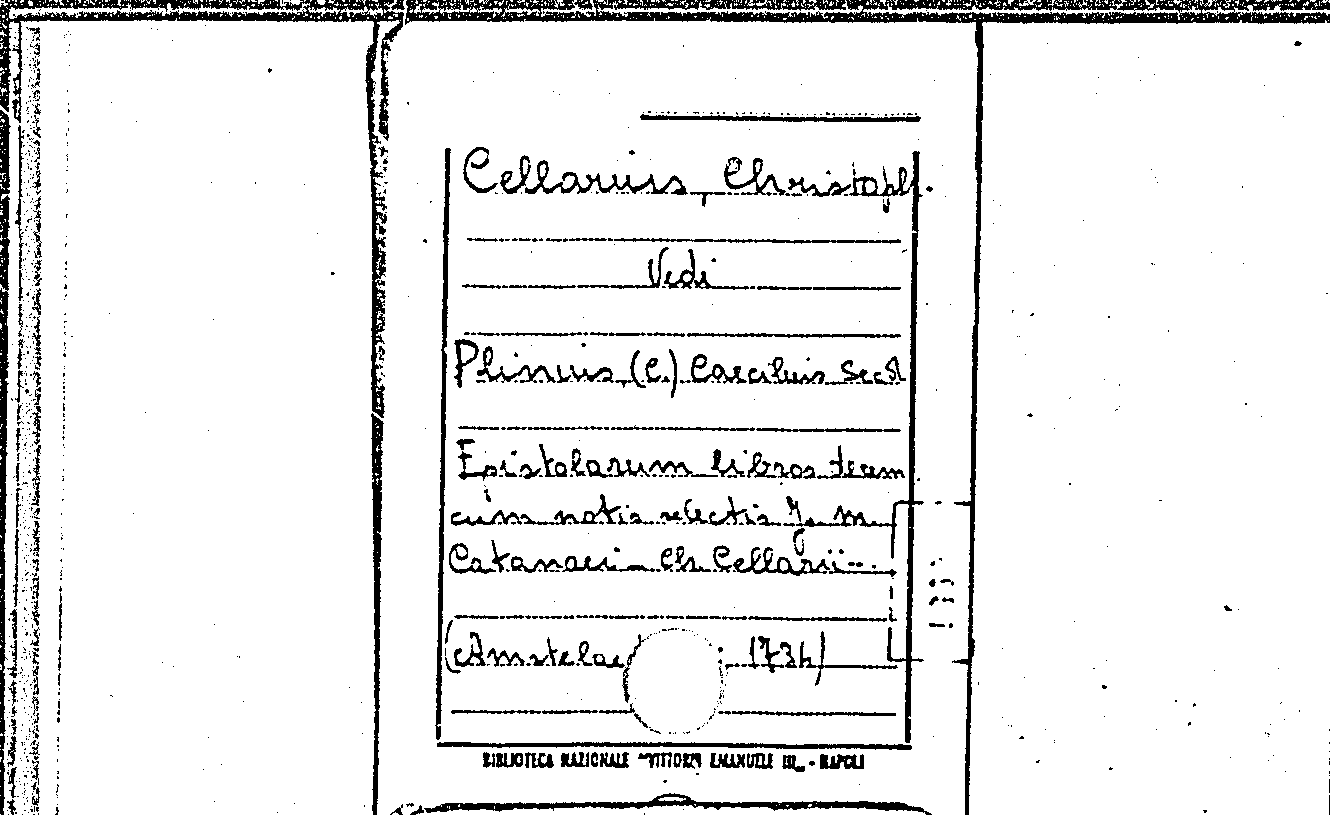 Cellarius, Christoph.
Vedi
Plinius (C.) Caecilius Secd
Epistolarum libros decem
cum notis selectis J. M.
Catanaei – Ch. Cellarii...
(Amstelae 1734)
BIBLIOTECA NAZIONALE "VITTORIO EMANUELE III" - NAPOLI